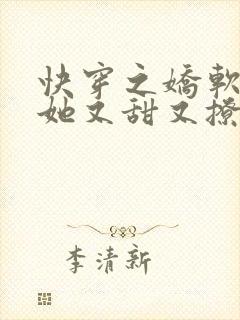 快穿之嬌軟
她又甜又撩
李清新